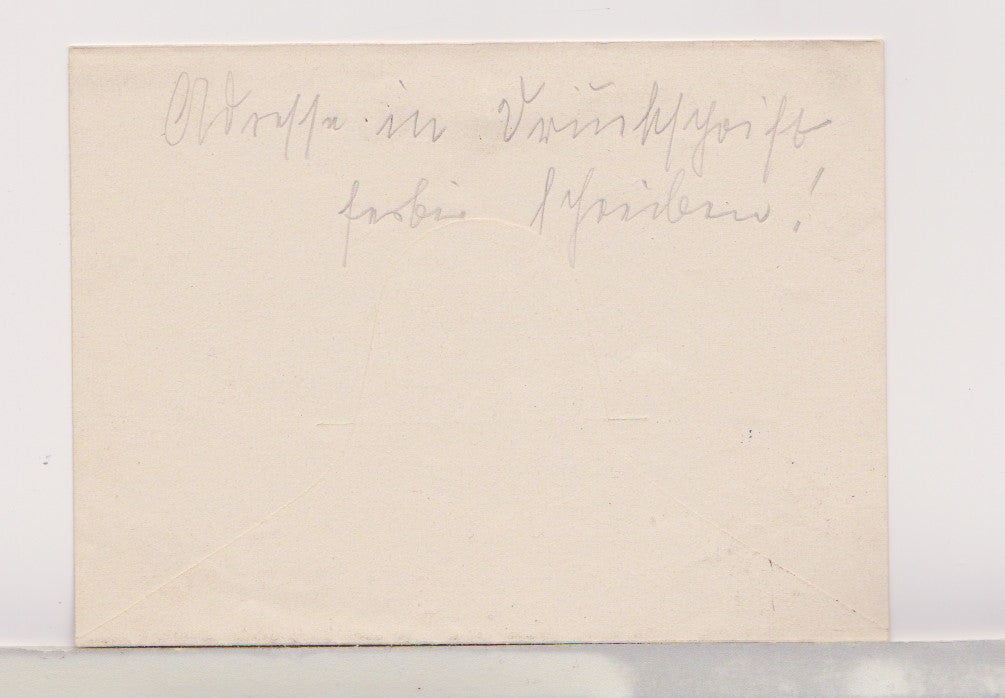 Adresse in Druckschrift
schreiben!